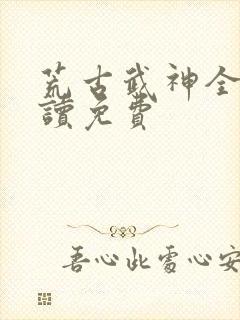 荒古武神全
讀免費
吾心此處心安